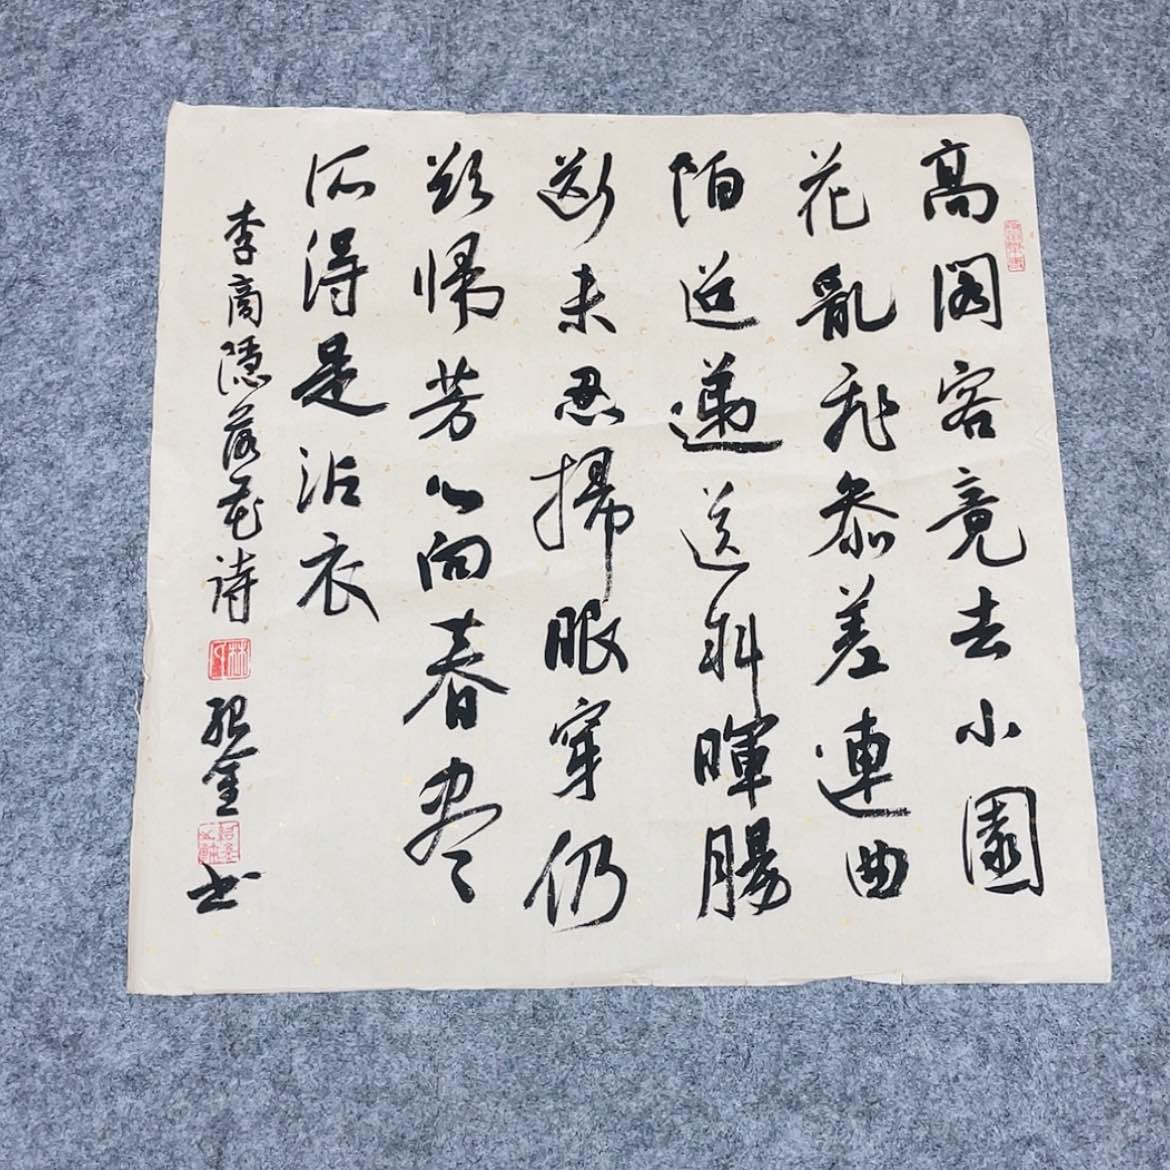 高阁客竟去小園
花亂飛参差連曲
陌迢递送斜暉腸
断未忍掃眼穿仍
欲帰芳心向春尽
所得是沾衣
李商隱落花詩
金書